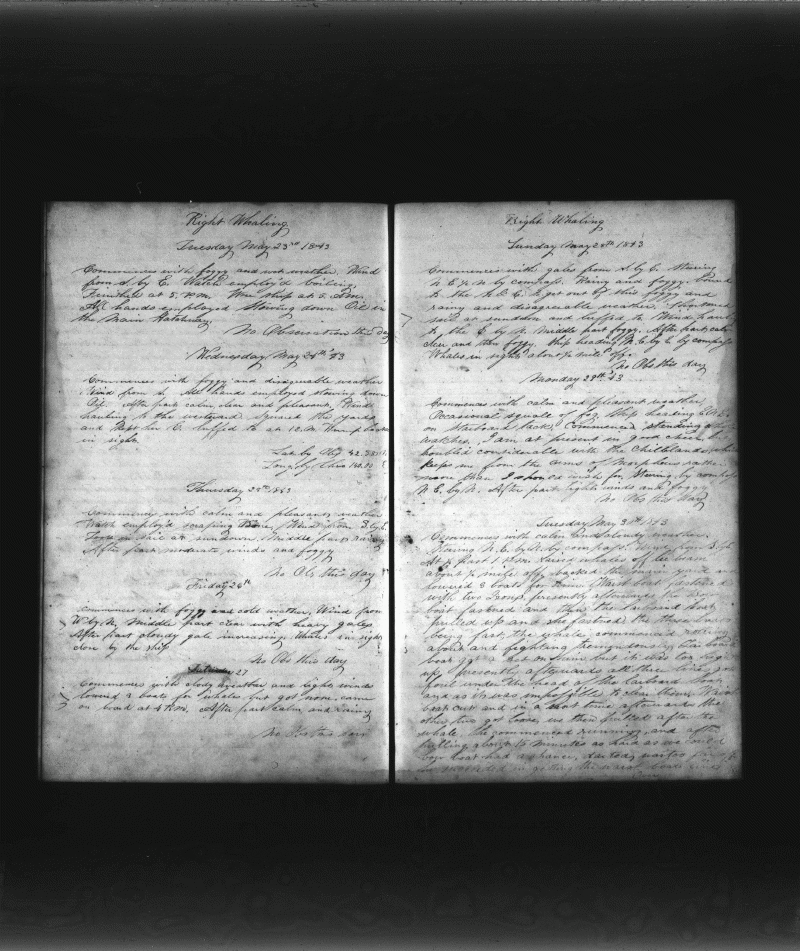 Right Whaling
Tuesday May 23rd 1843
Commences with foggy and wet weather. Wind
from S. by E. Watch employd boiling.
Finished at 5. P.M. Wore ship at 5. A.M.
All hands employed Stowing down Oil in
the Main Hatchway
No Observation this day
Wednesday May 24th 43
Commences with foggy and disagreable weather
Wind from S. All hands employed stowing down
Oil. After part calm, clear and pleasant, Wind
hauling to the westward. Squared the yards
and kept her E. luffed to at 12. M.
in sight
Lat. by Obs
Long by Chro
Thursday 25th 1843
Commences with calm and pleasant weather
Watch employd scraping Bone, Wind from
Took in sail at sun down. Middle part rainy
After part moderate winds and foggy
No Obs this day
Friday 26th
Commences with foggy and cold weather, Wind from
W. by N. Middle part clear with heavy gales
After part cloudy gale increasing. Whales in sight
close by the ship
No Obs this day
27
Commences with clody weather and light winds
lowered 3 boats for whales but got none, came
on board at 4 P.M. After part calm and rainy
No
Right Whaling
Sunday May 28th 1843
Commences with gales from S. by E. Steering
by compass. Rainy and foggy. bound
to the N.E. to get out of this foggy and
rainy and disagreable weather. Shortened
sail at sundown and luffed to Wind hauls
to the E. by N. Middle part foggy. After part calm
clear and then foggy. Ship heading N.E. by E by compass
Whales in sight about ½ mile off.
No Obs this day
Monday 29th 43
Commences with calm and pleasant weather
Occasional squale of fog, Ship heading
on Starboard tack. Commenced standing
watches. I am at present in good cheer, but
troubled considerable with the Chilblains, which
keeps me from the arms of Morpheus rather
more than I should wish for. Steering by compass
N.E. by N. After part light winds and foggy
No Obs this day
Tuesday May 30th 1843
Commences with calm and cloudy weather.
Steering N.E. by N. by compass. Wind from
At ½ past 1 P.M. raised whales off lee beam
about ½ mile off, backed the main yard and
lowered 3 boats for them. Waist boat fastened
with two Irons, presently afterwards the Bow
boat fastened and then the Larboard boat
pulled up and she fastned. the three boats
being fast, the whale commenced
about and fighting tremendously. Star board
boat got a dart on him but
up. presently afterwards all three lines got
foul under the head of the Larboard boat
and as it was impossible to clear them, Waist
boat cut and in a short time afterwards the
other two got loose, we then pulled after the
whale, he commenced running, and after
pulling about 10 minutes as hard as we could
Bow boat had a chance, darted,